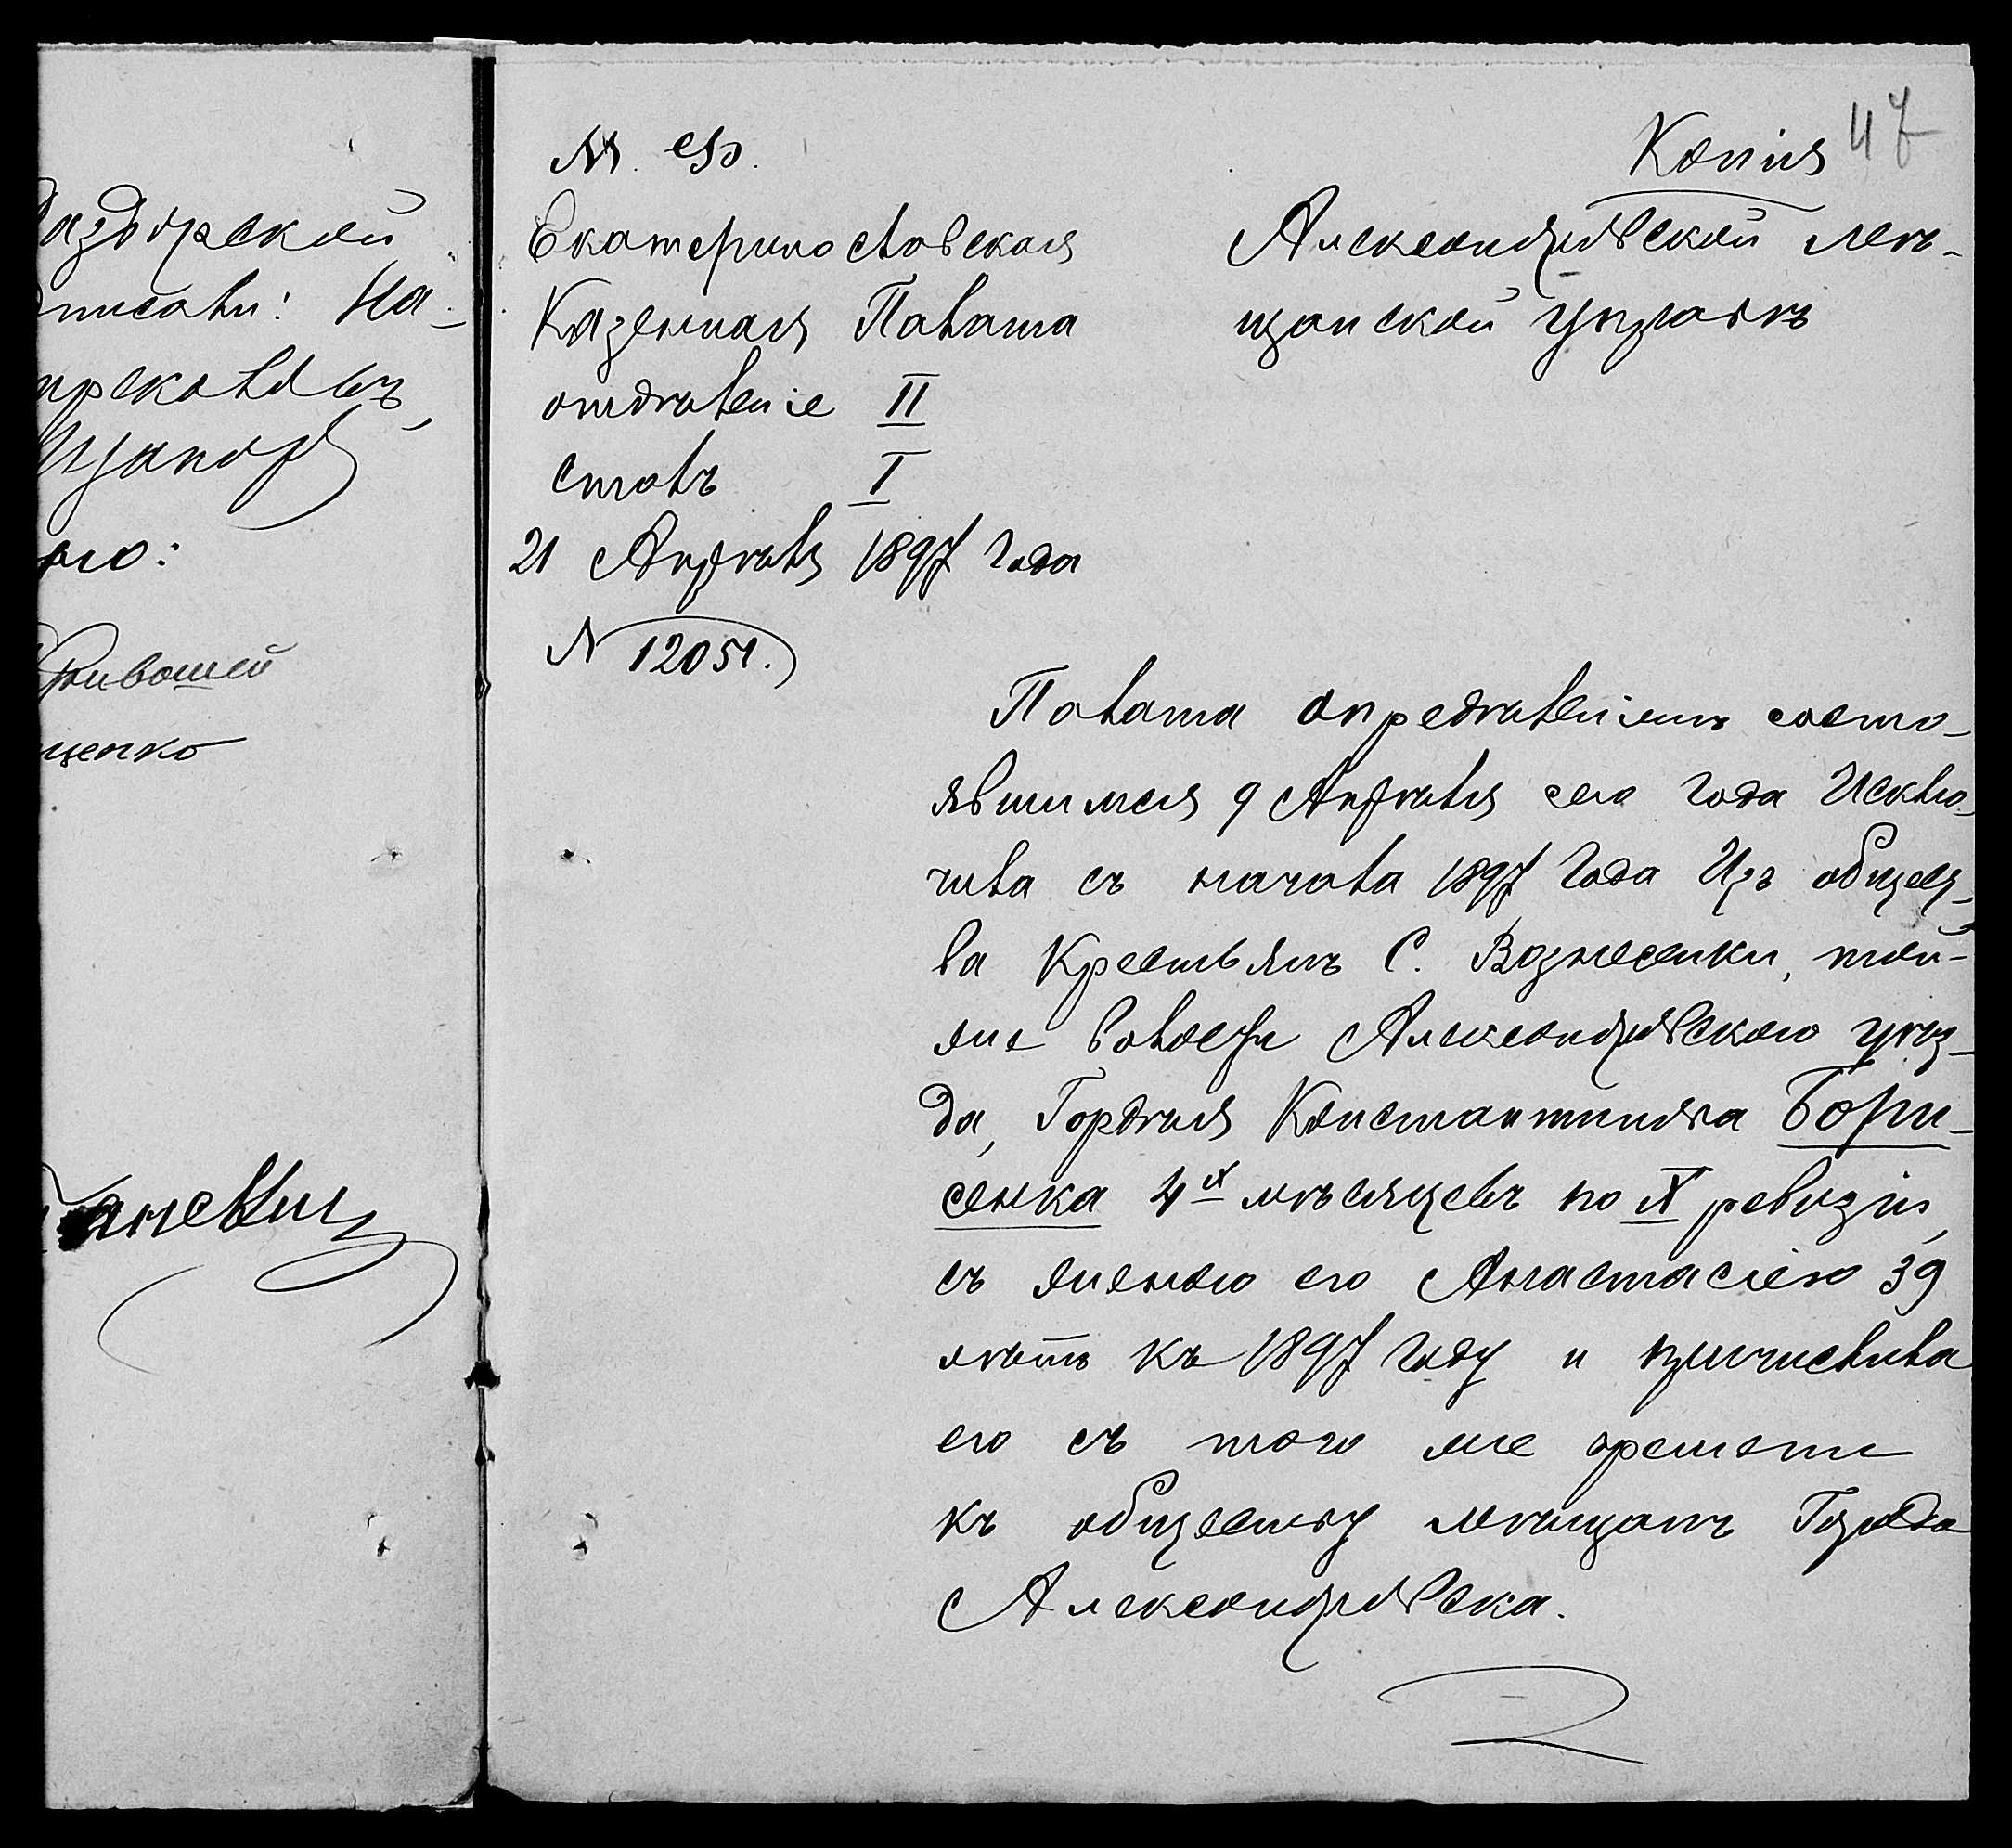 аздорской
писали: На-
ого:
Кривошей
щенко
47
Копія
М. Ф.
Екатеринославская
Казенная Палата
отдѣленіе II
столъ I
21 Апрѣля 1897 года
N 12051.
Александровской мѣ-
щанской Управѣ
Палата опредѣленіемъ состо-
явшимся 9 Апрѣля сего года Исклю-
чила съ начала 1897 года Изъ общест-
ва Крестьянъ С. Вознесенки, той-
же волости Александровскаго уѣз-
да, Гордѣя Константинова Бори-
сенка 4х мѣсяцевъ по X ревизіи,
съ женою его Анастасіею 39
лѣтъ къ 1897 году и причислила
его съ того же времени
къ обществу мѣщанъ Города
Александровска.